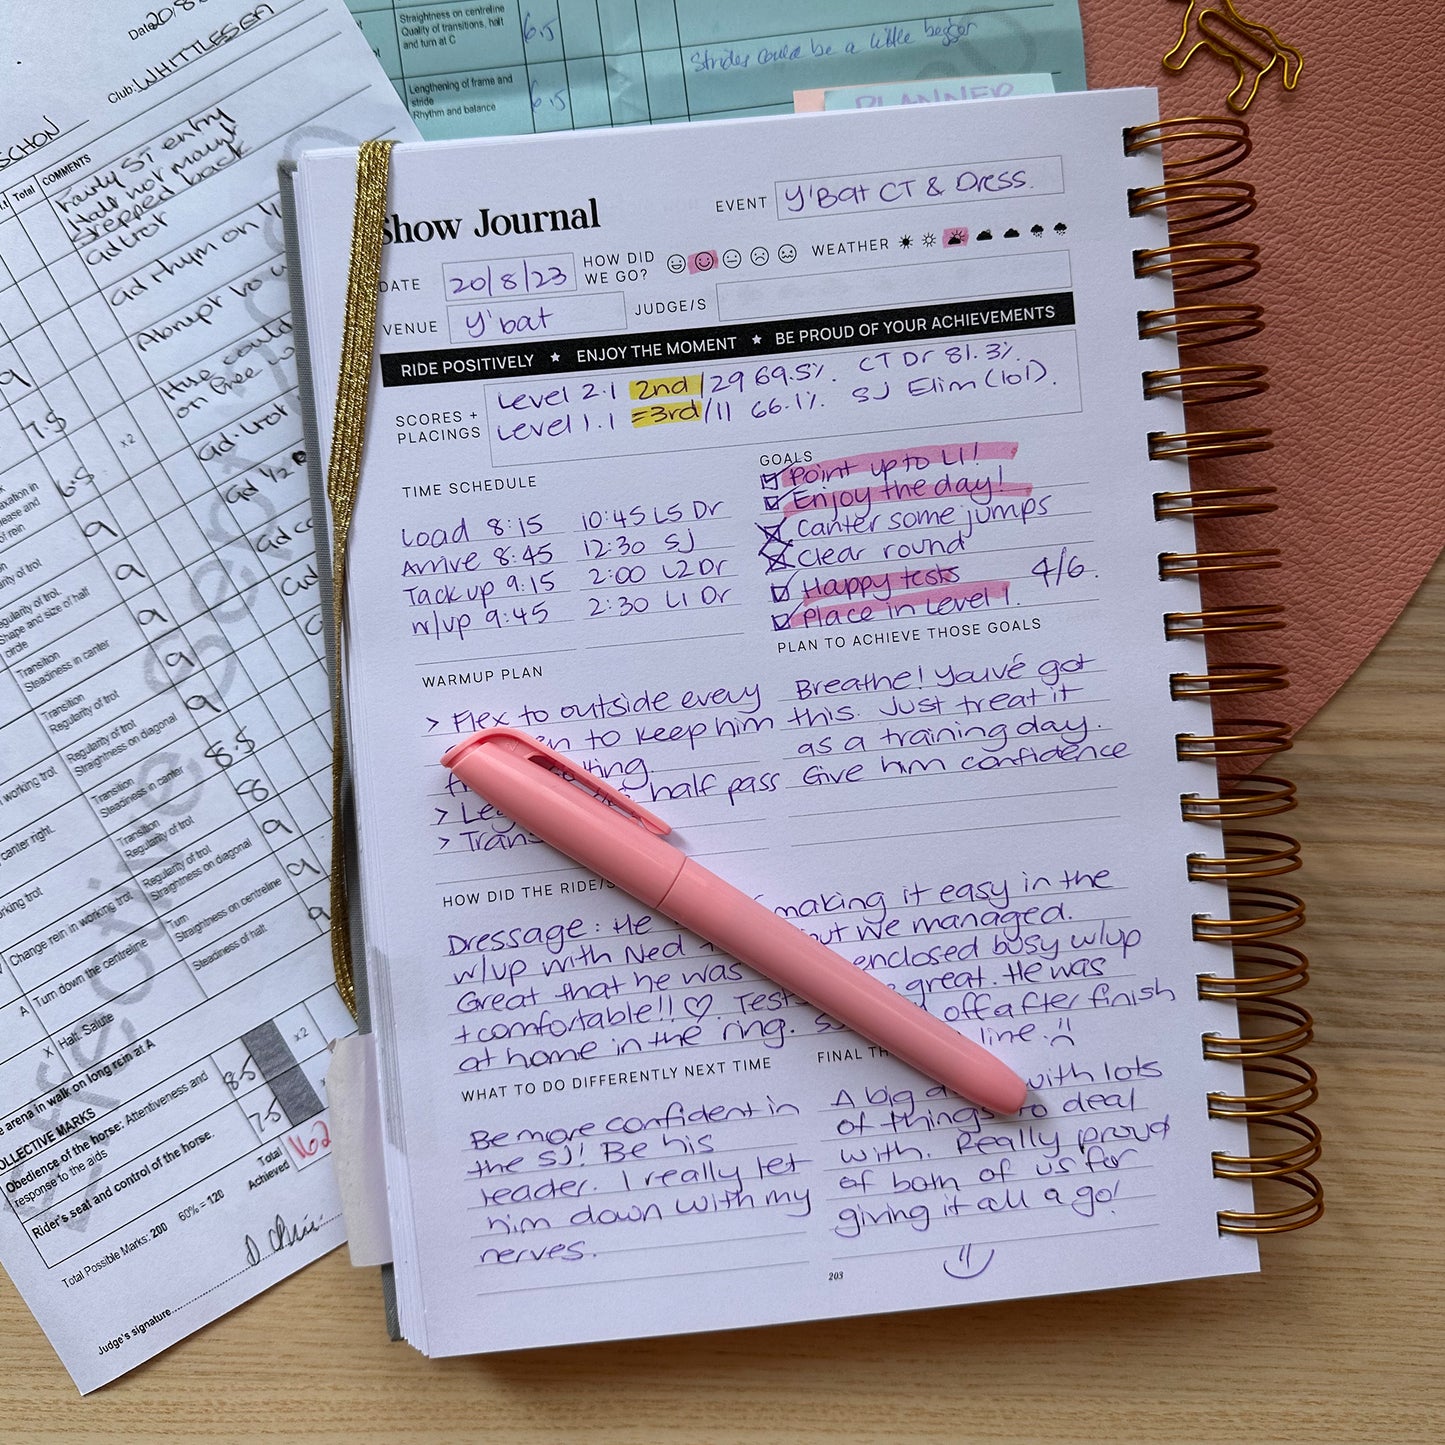 Date 2018
Club: WHITTLESEA
SCHON
Total
COMMENTS
Fairly ST entry
Halt not maint.
stepped back
Straightness on centreline
Quality of transitions, halt
and turn at C
6.5
Lengthening of frame and
stride
Rhythm and balance
6.5
Strides could be a little bigger
PLANNER
Show Journal
EVENT Y'Bat CT & Dress.
DATE 20/8/23
HOW DID
WE GO?
WEATHER
VENUE Y'bat
JUDGE/S
RIDE POSITIVELY ★ ENJOY THE MOMENT ★ BE PROUD OF YOUR ACHIEVEMENTS
SCORES +
PLACINGS
Level 2.1 2nd/29 69.5%. CT Dr 81.3%.
Level 1.1 =3rd/11 66.1%. SJ Elim (lol).
TIME SCHEDULE
Load 8:15
Arrive 8:45
Tack up 9:15
w/up 9:45
10:45 LS Dr
12:30 SJ
2:00 L2 Dr
2:30 L1 Dr
GOALS
Point up to L1!
Enjoy the day!
Canter some jumps
Clear round
Happy tests 4/6.
Place in Level 1.
WARMUP PLAN
> Flex to outside every
to keep him
half pass
> Trans
PLAN TO ACHIEVE THOSE GOALS
Breathe! You've got
this. Just treat it
as a training day.
Give him confidence
HOW DID THE RIDE/S
Dressage: He making it easy in the
w/up with Ned but we managed.
Great that he was enclosed busy w/up
+ comfortable!! ♡. Test great. He was
at home in the ring. SJ off after finish
line.
WHAT TO DO DIFFERENTLY NEXT TIME
Be more confident in
the SJ! Be his
leader. I really let
him down with my
nerves.
FINAL TH
A big with lots
of things to deal
with. Really proud
of both of us for
giving it all a go!
203
9
7.5
x2
6.5
9
9
9
9
9
8.5
8
9
9
9
Transition
Steadiness in canter
Transition
Regularity of trot
Regularity of trot
Straightness on diagonal
Transition
Steadiness in canter
Transition
Regularity of trot
Regularity of trot
Straightness on diagonal
Turn
Straightness on centreline
Steadiness of halt
working trot
canter right.
Change rein in working trot
A Turn down the centreline
X Halt. Salute
arena in walk on long rein at A
COLLECTIVE MARKS
Obedience of the horse: Attentiveness and
response to the aids
8.5 x2
Rider's seat and control of the horse.
7.5
Total
Achieved
162
Total Possible Marks: 200 60% = 120
Judge's signature